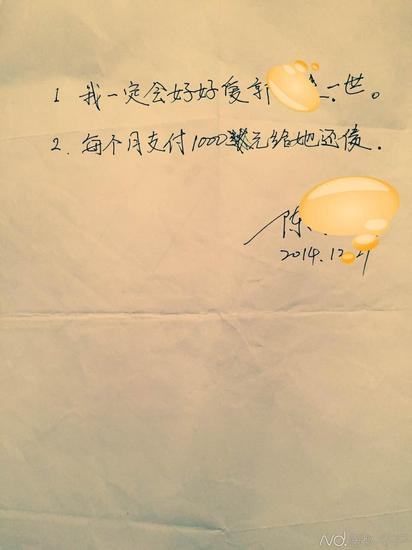 1 我一定会好好爱郭一世。
2. 每个月支付1000元给她还债.
陈
2014.12.